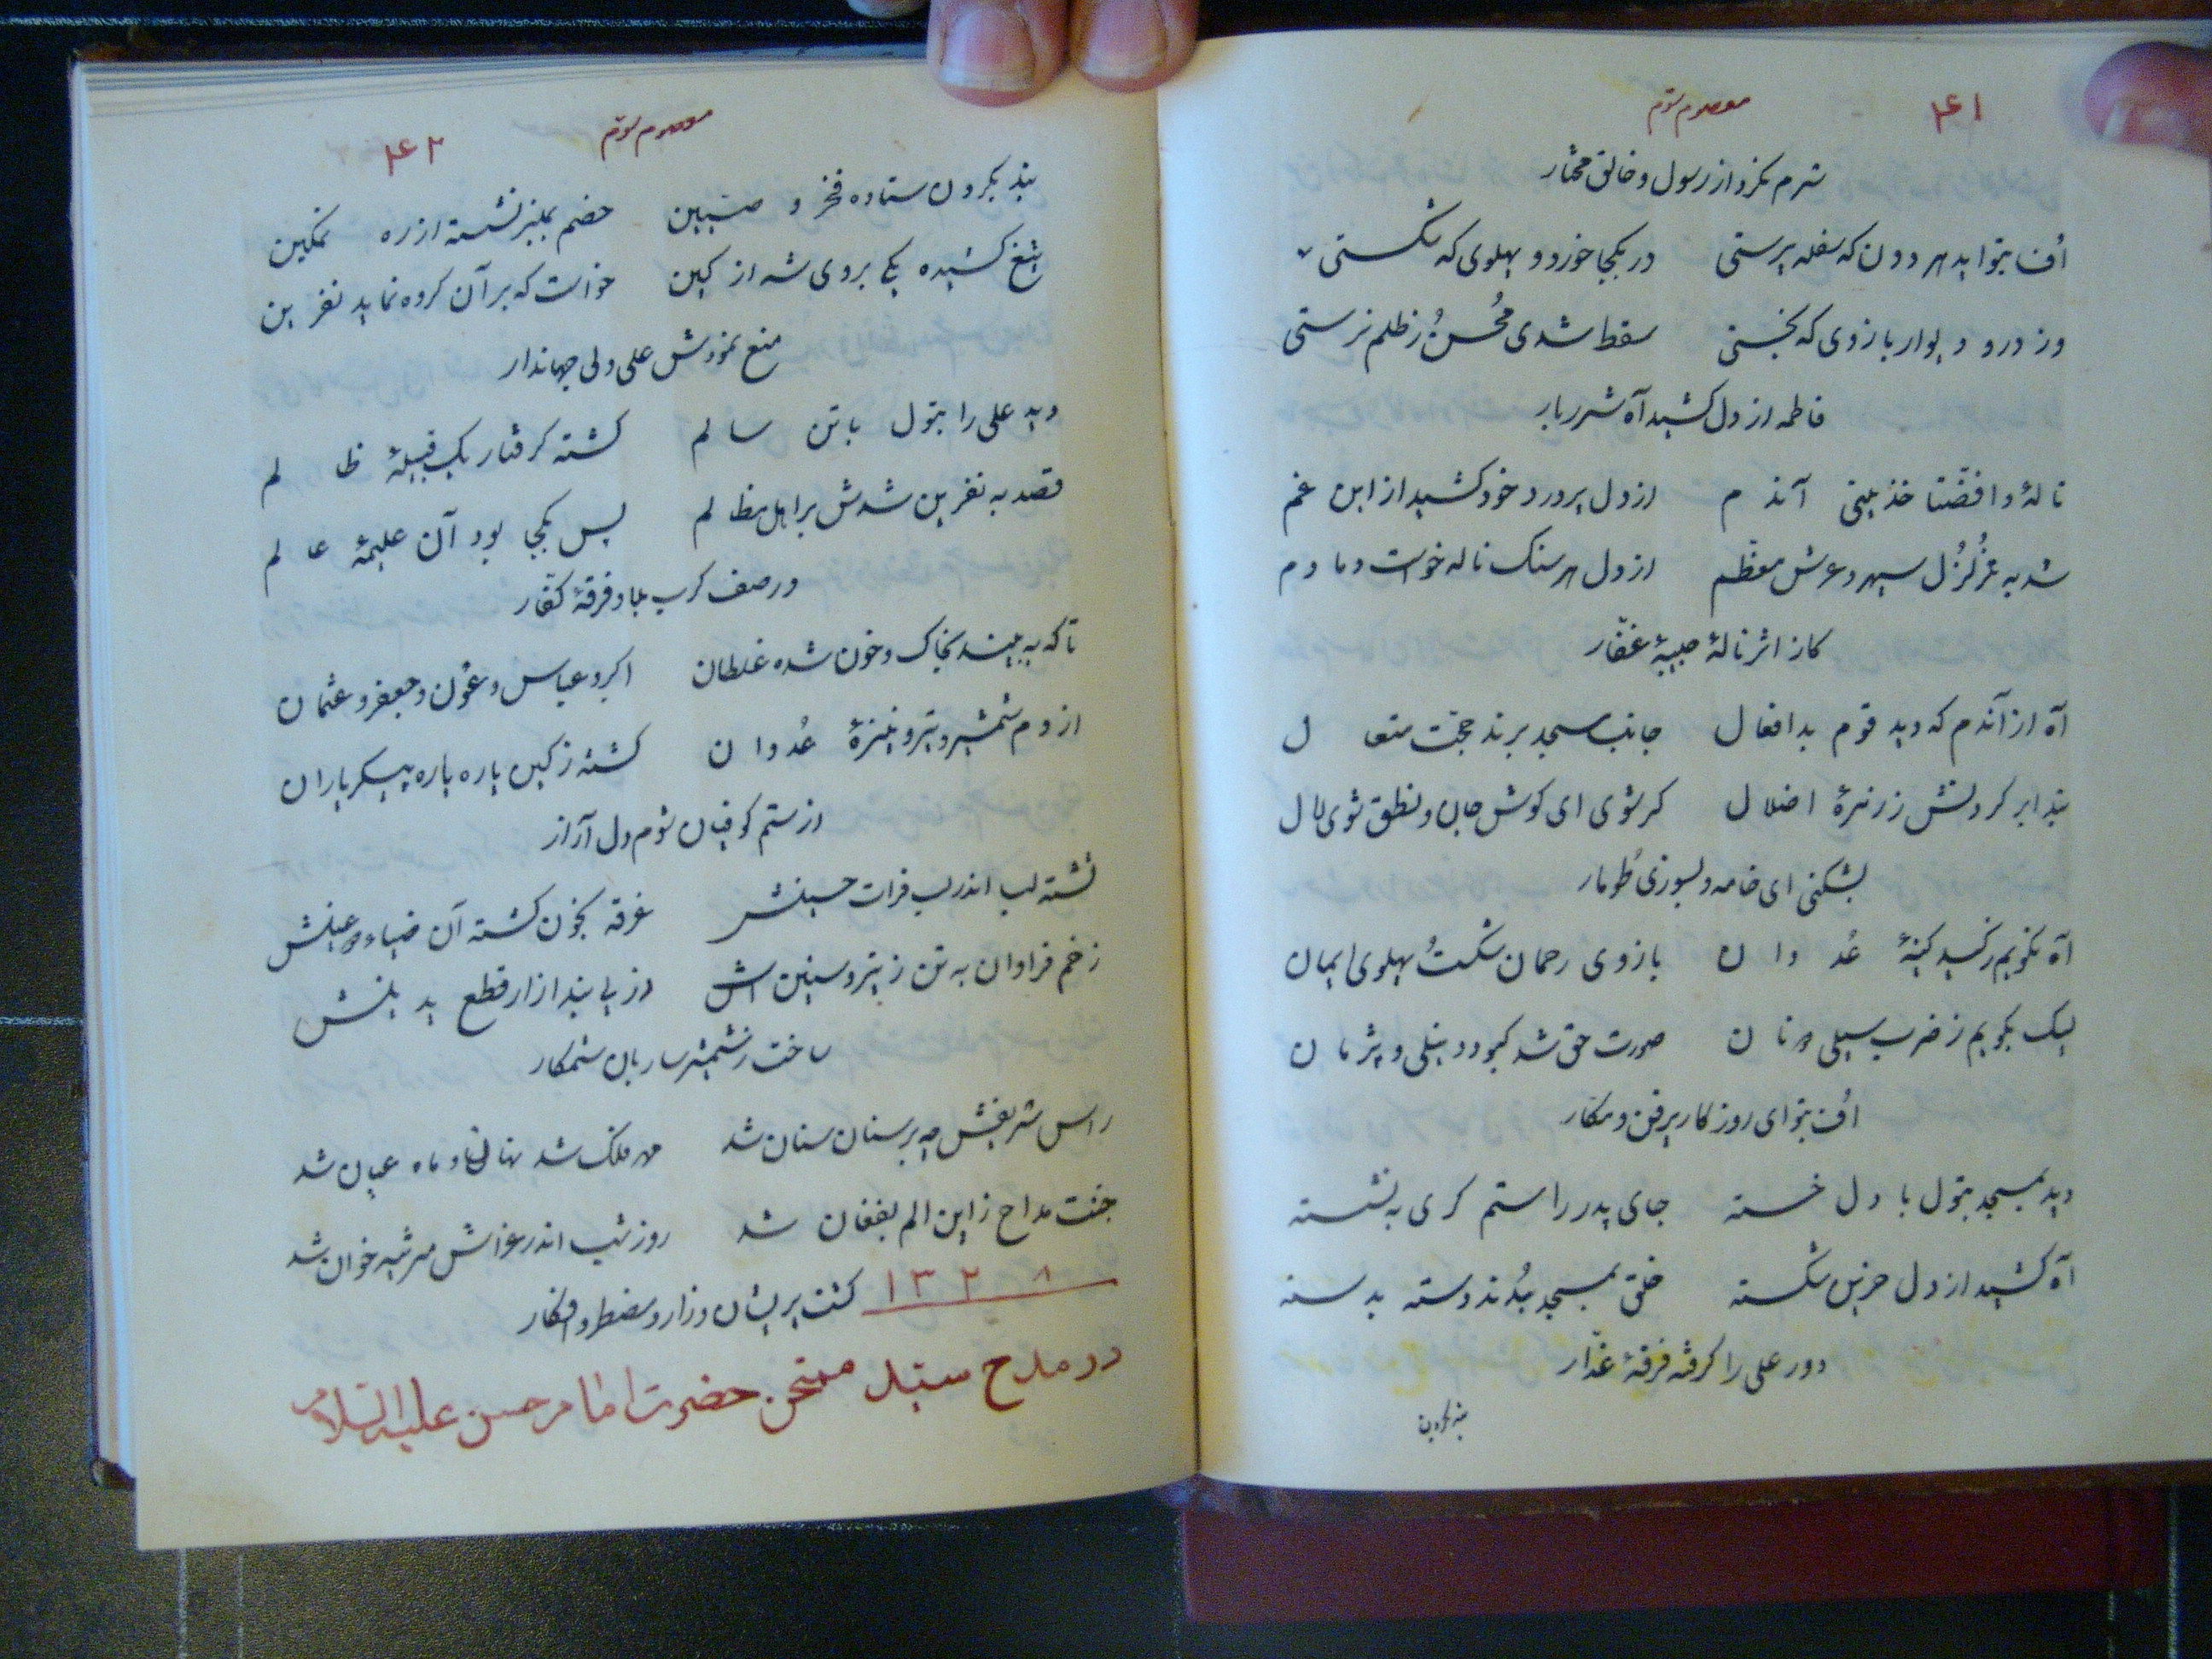 ۲۴۱
معصوم سوم
شرم نکرد از رسول و خالق مختار
اُف بتو ای دهر دون که سفله پرستی در بکجا خورد و پهلوی که شکستی
وز در و دیوار بازوی که بخستی سقط شدی محسنُ ز ظلم نرستی
فاطمه از دل کشید آه شرربار
نالهٔ وا فضّتا خذینی آندم از دل پر درد خود کشید از این غم
شد به تزلزُل سپهر و عرش معظّم از دل هر سنک ناله خواست دمادم
کاز اثر نالهٔ حبیبهٔ غفّار
آه از آندم که دید قوم بدافعال جانب مسجد برند حجّت متعال
بند ابر کردنش ز زمرهٔ اضلال کر شوی ای کوش جان و نطق شوی لال
بشکنی ای خامه و بسوزی طومار
آه نکویم رسید کینهٔ عُدوان بازوی رحمان شکستُ پهلوی ایمان
لیک بکویم ز ضرب سیلی صورت حق شد کبود و نیلی و پژمان
اُف بتو ای روزکار پر فن و مکار
دید بمسجد بتول با دل خسته جای پدر را ستم کری به نشسته
آه کشید از دل حزین شکسته خلق بمسجد بُدند دسته بدسته
دور علی را کرفته فرقهٔ غدّار
بند بکردن
۲۴۲
معصوم سوم
بند بکردن ستاده فخر و خصم بمنبر نشسته از ره تمکین
تیغ کشیده یکی بروی شه از کین خواست که بر آن کروه نماید نفرین
منع نمودش علی ولی جهاندار
دید علی را بتول با تن سالم کشته کرفتار یک قبیلهٔ ظالم
قصد به نفرین شدش بر اهل مظالم پس بکجا بود آن علیمهٔ عالم
در صف کرب بلا و فرقهٔ کفّار
تا که به بیند بخاک و خون شده غلطان اکبر و عباس و عَون و جعفر و عثمان
از دم شمشیر و تیر و نیزهٔ عُدوان کشته ز کین پاره پاره پیکر یاران
از ستم کوفیان شوم دل آزار
تشنه لب اندر لب فرات حسینش غرقه بخون کشته آن ضیاء دو عینش
زخم فراوان به تن ز تیر و سنین اش از پی بند ازار قطع یدینش
ساخت ز شمشیر ساربان ستمکار
راس شریفش چه بر سنان سنان شد مهر فلک شد نهان و ماه عیان شد
جنّت مداح ز این الم بفغان شد روز شب اندر عزاش مرثیه خوان شد
۱۳۲۸ کشت پریشان و زار و مضطر و افکار
در مدح سید ممتحن حضرت امام حسن علیه السّلام